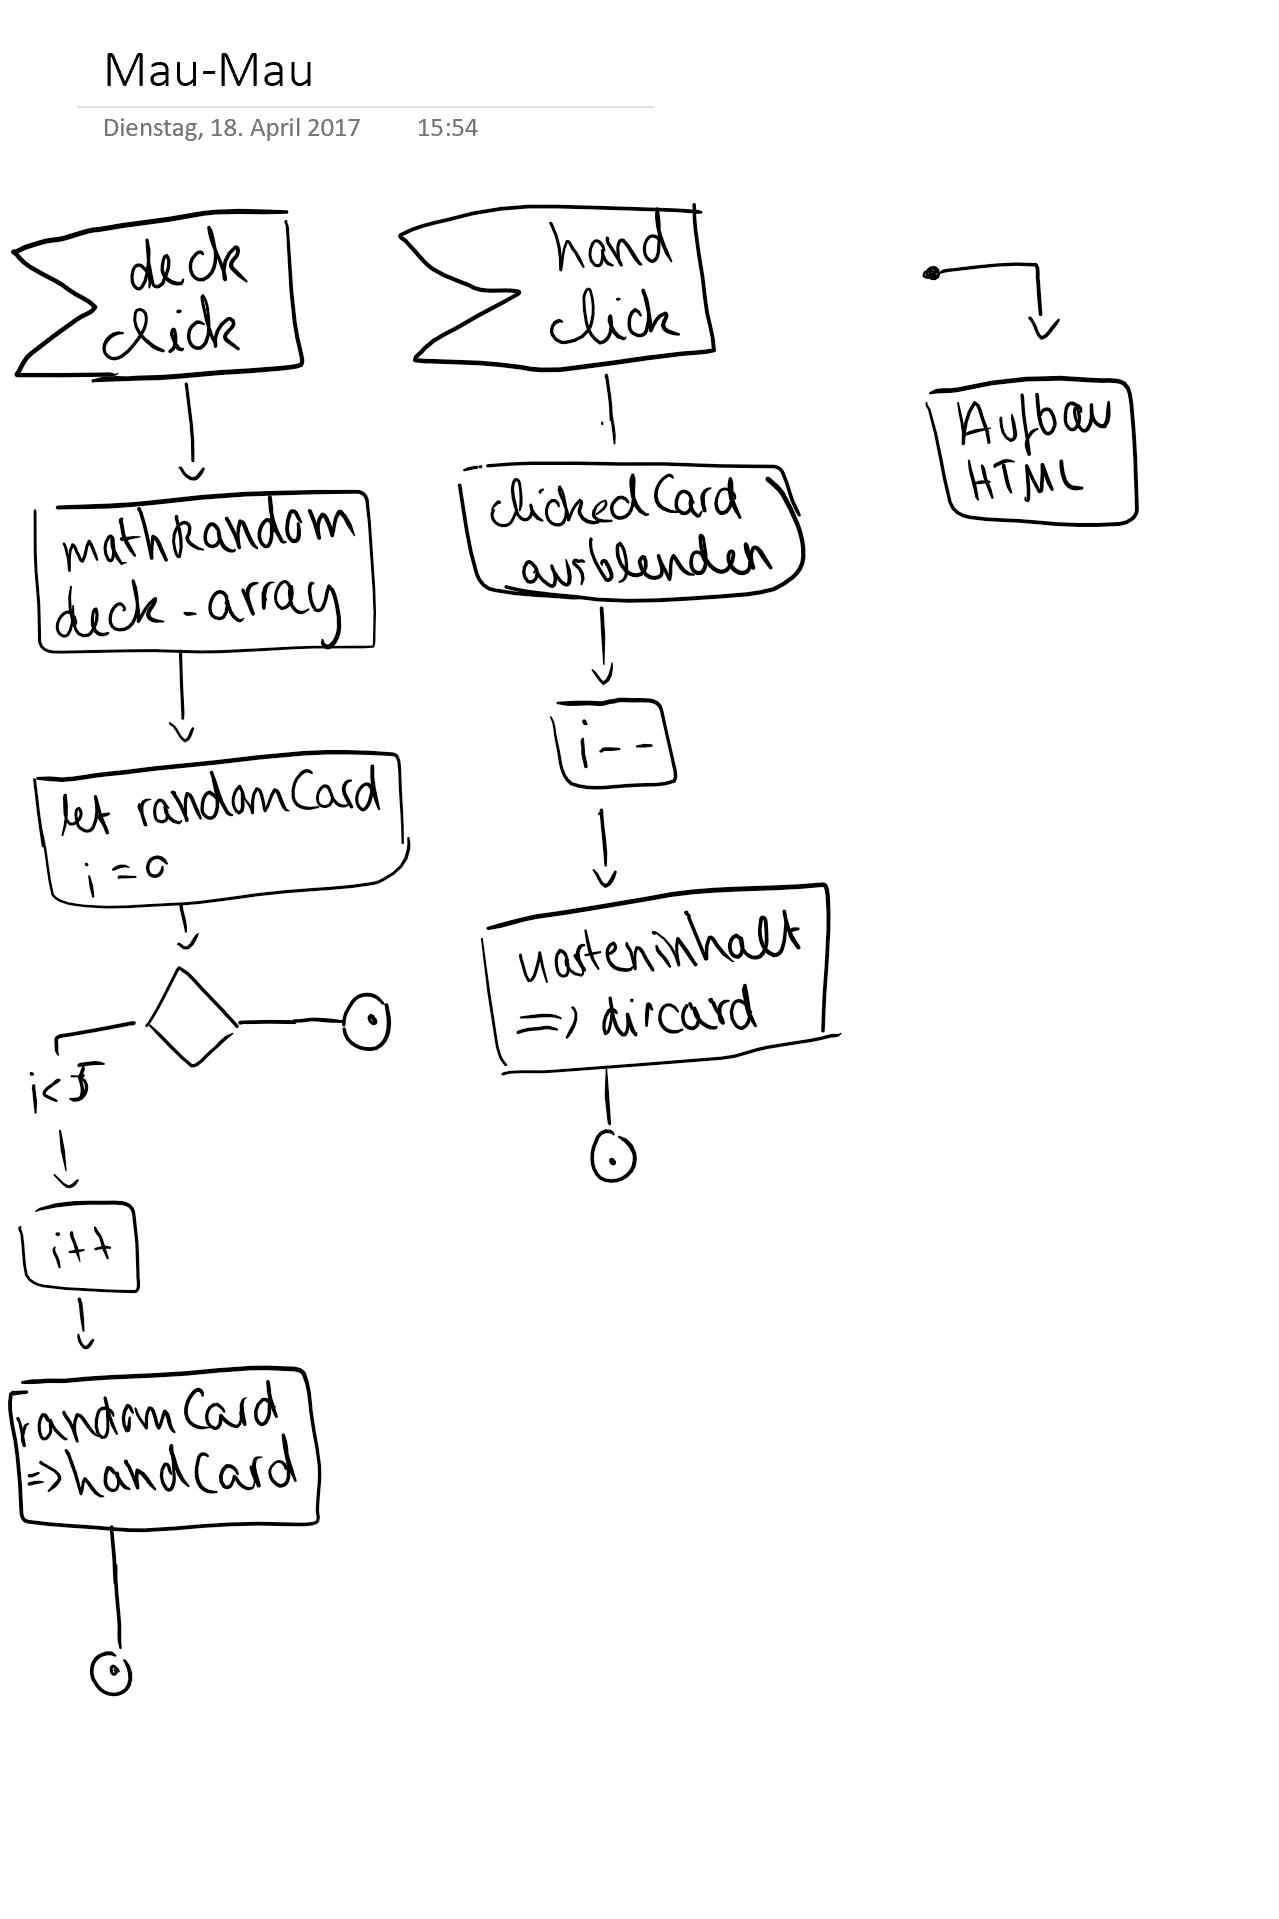 Mau-Mau
Dienstag, 18. April 2017 15:54
deck
click
mathRandom
deck-array
let randomCard
i=0
i<5
i++
randomCard
=>handCard
hand
click
clickedCard
ausblenden
i--
Karteninhalt
=> discard
Aufbau
HTML